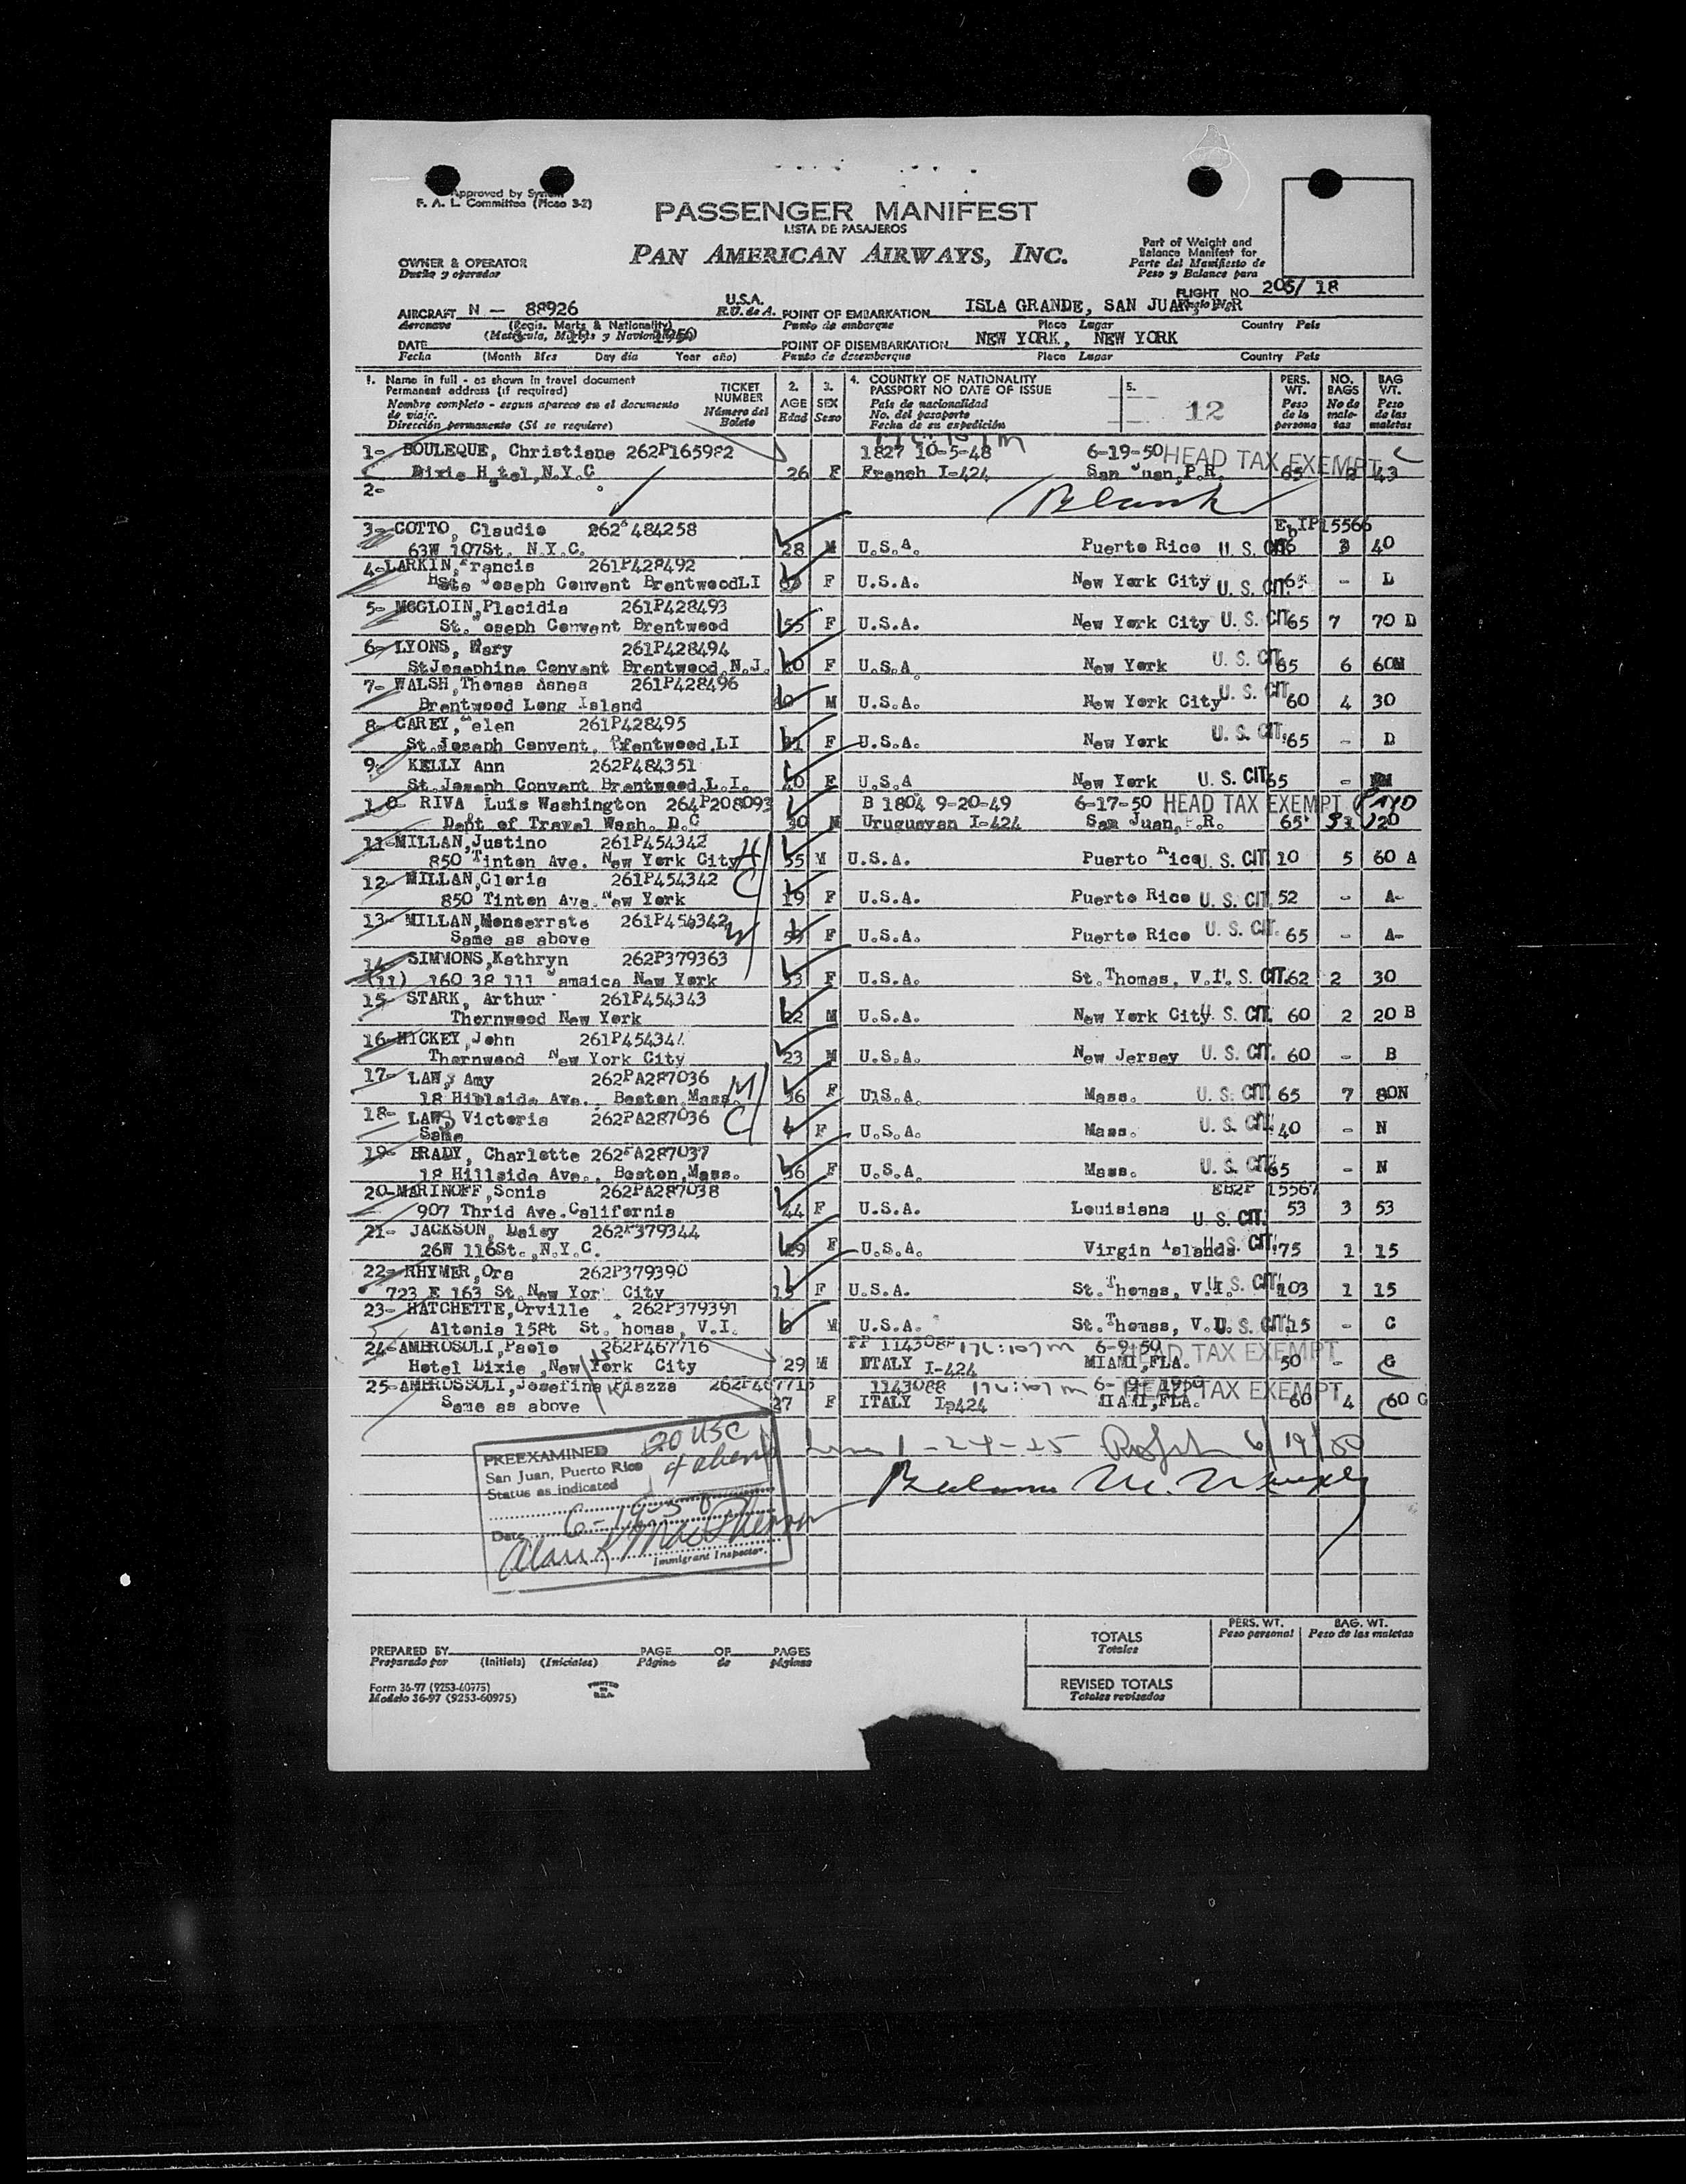 Approved by System
F. A. L. Committee (Picao 3-2)
PASSENGER MANIFEST
LISTA DE PASAJEROS
PAN AMERICAN AIRWAYS, INC.
Part of Weight and
Balance Manifest for
Parte del Manifiesto de
Peso y Balance para
OWNER & OPERATOR
Dueño y operador
FLIGHT NO. 205/ 18
AIRCRAFT N - 88926 U.S.A. POINT OF EMBARKATION ISLA GRANDE, SAN JUAN
Aeronave (Regis. Marks & Nationality) E.U. de A. Punto de embarque Place Lugar Country País
DATE POINT OF DISEMBARKATION NEW YORK, NEW YORK
Fecha (Month Mes Day día Year año) Punto de desembarque Place Lugar Country País
1. Name in full - as shown in travel document
Permanent address (if required)
Nombre completo - según aparece en el documento
de viaje.
Dirección permanente (Si se requiere)
TICKET
NUMBER
Número del
Boleto
2.
AGE
Edad
3.
SEX
Sexo
4. COUNTRY OF NATIONALITY
PASSPORT NO DATE OF ISSUE
País de nacionalidad
No. del pasaporte
Fecha de su expedición
5.
12
PERS.
WT.
Peso
de la
persona
NO.
BAGS
No de
male-
tas
BAG
WT.
Peso
de las
maletas
1- BOULEQUE, Christiane 262P165982 1827 10-5-48 6-19-50 HEAD TAX EXEMPT
Dixie Hotel, N.Y.C 26 F French I-424 San Juan, P.R. 65 43
2- Blank
3- COTTO, Claudio 262 484258 15566
63W 107St. N.Y.C. 28 M U.S.A. Puerto Rico U. S. CIT. 3 40
4-LARKIN, Francis 261P428492
Ste Joseph Convent BrentwoodLI F U.S.A. New York City U. S. CIT. 65 - D
5- MCGLOIN,Placidia 261P428493
St. Joseph Convent Brentwood 55 F U.S.A. New York City U. S. CIT 65 7 70 D
6- LYONS, Mary 261P428494
StJosephine Convent Brentwood, N.J. F U.S.A New York U. S. CIT 65 6 60M
7- WALSH, Thomas Asnes 261P428496
Brentwood Long Island M U.S.A. New York City U. S. CIT. 60 4 30
8- CAREY, Helen 261P428495
St.Joseph Convent, Brentwood,LI F U.S.A. New York U. S. CIT. 65 - D
9- KELLY Ann 262P484351
St. Joseph Convent Brentwood,L.I. 40 F U.S.A New York U. S. CIT 65 -
10- RIVA Luis Washington 264P208093 B 1804 9-20-49 6-17-50 HEAD TAX EXEMPT
Dept of Travel Wash. D.C 30 M Uruguayan I-424 San Juan, P.R. 65
11-MILLAN,Justino 261P454342 H
850 Tinton Ave. New York City 55 M U.S.A. Puerto Rico U. S. CIT. 10 5 60 A
12- MILLAN,Gloria 261P454342 C
850 Tinton Ave. New York 19 F U.S.A. Puerto Rico U. S. CIT. 52 - A-
13- MILLAN,Monserrate 261P454342 W
Same as above F U.S.A. Puerto Rico U. S. CIT. 65 - A-
14- SIMMONS,Kathryn 262P379363
(11) 160 38 111 Jamaica New York 53 F U.S.A. St.Thomas, V.I. U. S. CIT. 62 2 30
15- STARK, Arthur 261P454343
Thornwood New York 22 M U.S.A. New York City U. S. CIT. 60 2 20 B
16-HICKEY,John 261P454344
Thornwood New York City 23 M U.S.A. New Jersey U. S. CIT. 60 - B
17- LAWS Amy 262PA287036 M
18 Hillside Ave., Boston,Mass. 36 F U.S.A. Mass. U. S. CIT 65 7 80N
18- LAWS Victoria 262PA287036 C
Same F U.S.A. Mass. U. S. CIT. 40 - N
19- BRADY, Charlotte 262PA287037
18 Hillside Ave., Boston,Mass. 36 F U.S.A. Mass. U. S. CIT. 65 - N
20-MARINOFF,Sonia 262PA287038 15567
907 Thrid Ave.California 44 F U.S.A. Louisiana U. S. CIT. 53 3 53
21- JACKSON, Daisy 262P379344
26W 116St.,N.Y.C. F U.S.A. Virgin Islands U. S. CIT. 75 1 15
22- RHYMER,Ora 262P379390
723 E 163 St.New Yor City F U.S.A. St.Thomas, V.I. U. S. CIT. 103 1 15
23- HATCHETTE,Orville 262P379391
Altonia 158t St. homas, V.I. 6 M U.S.A. St.Thomas, V.I. U. S. CIT. 15 - C
24-AMBROSOLI,Paolo 262P467716 PP 114308 6-9-50 HEAD TAX EXEMPT
Hotel Dixie ,New York City 29 M ITALY I-424 MIAMI,FLA. 50 -
25-AMBROSSOLI,Josefina Piazza 262P467715 1143088 6-9-1950 HEAD TAX EXEMPT
Same as above 27 F ITALY I-424 MIAMI,FLA. 60 4 60 G
1-24-25 6/19/50
PREEXAMINED 20 USC
San Juan, Puerto Rico 4 aliens
Status as indicated
Date 6-19-50
Alan K MacPherson
Immigrant Inspector.
TOTALS
Totales
PERS. WT.
Peso personal
BAG. WT.
Peso de las maletas
REVISED TOTALS
Totales revisados
PREPARED BY PAGE OF PAGES
Preparado por (Initials) (Iniciales) Página de páginas
Form 36-97 (9253-60975)
Modelo 36-97 (9253-60975)
PRINTED
IN
U.S.A.